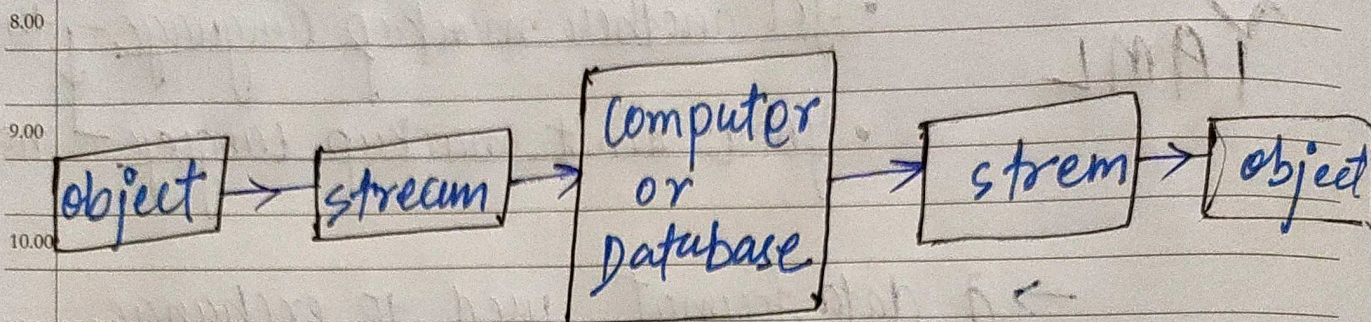 8.00
9.00
object → stream → computer or Database → strem → object
10.00